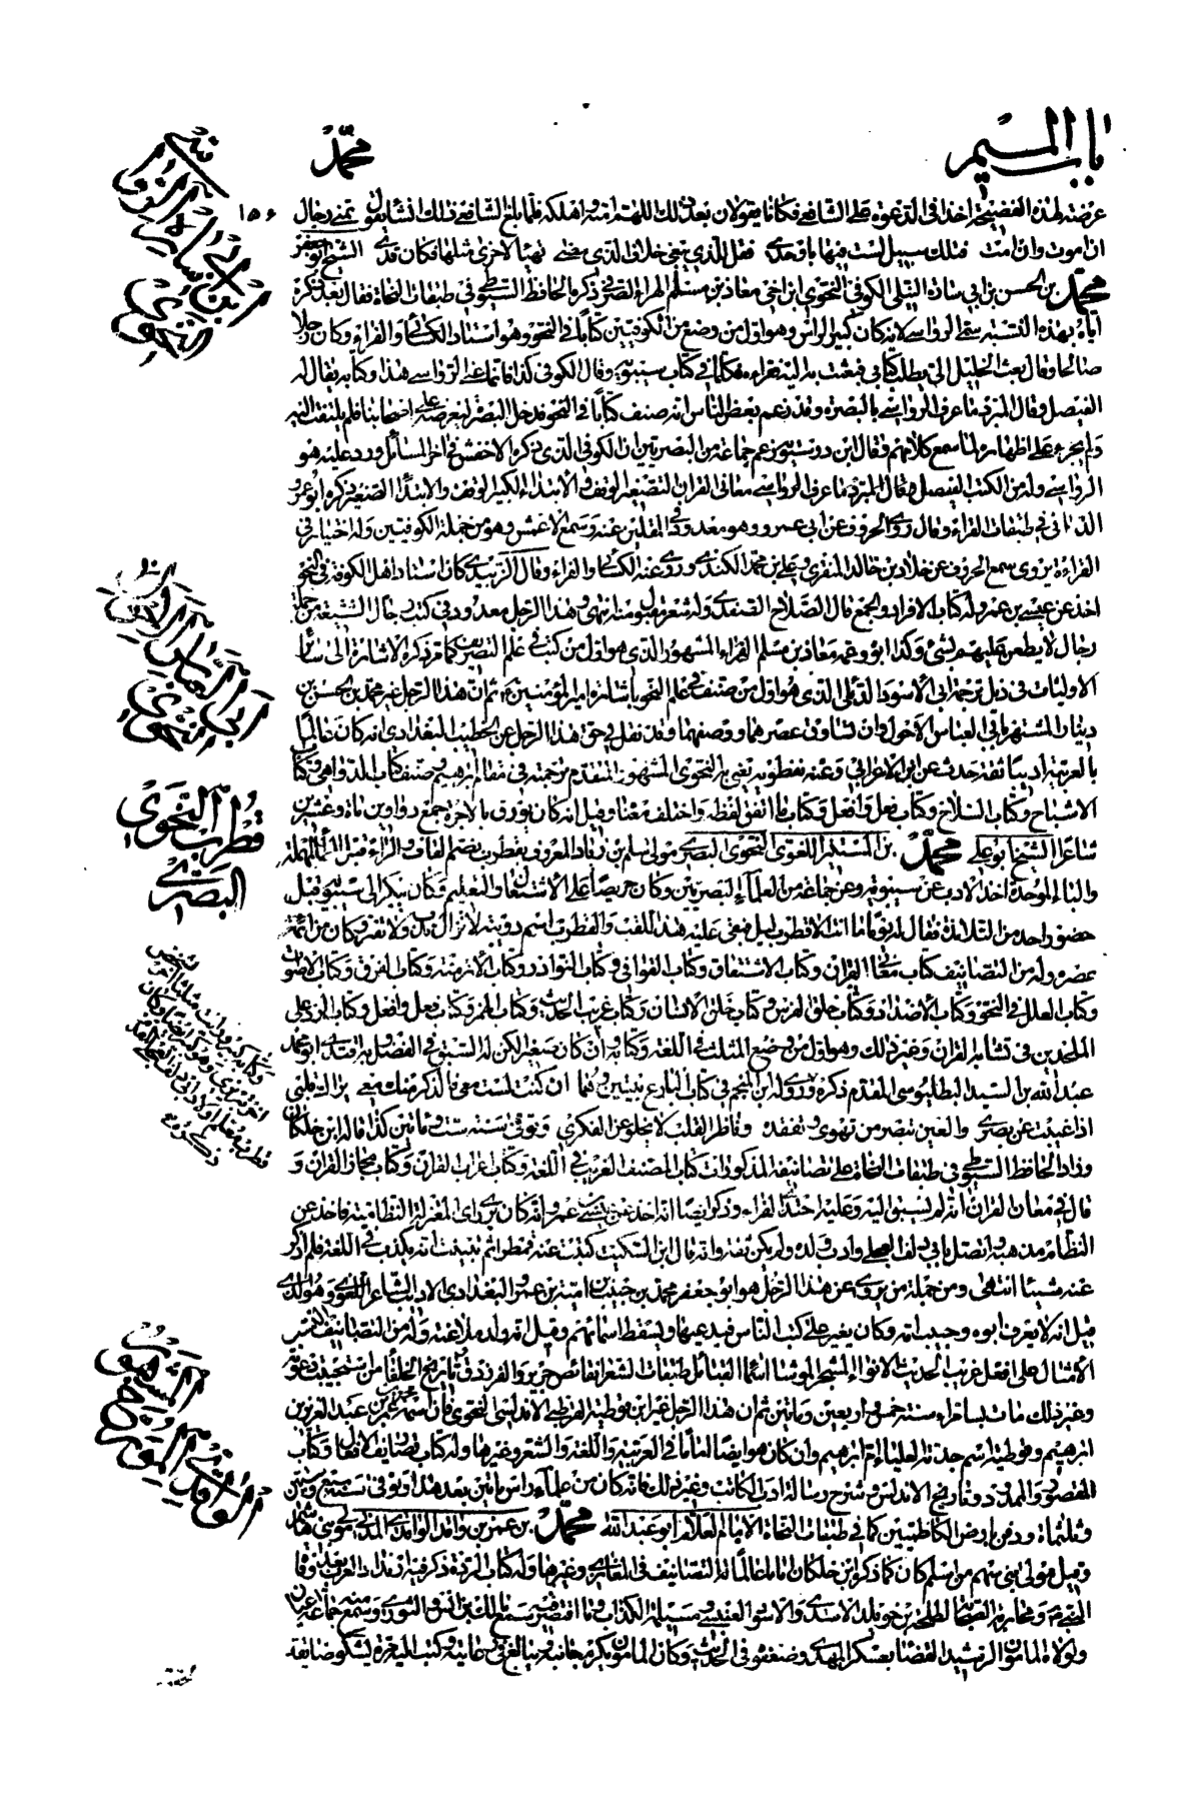 باب الميم
محمد
١٥٦
عرضته لهذه الفضيحة اخذا في الدعوة على الشافعي فكانا يقولان بعد ذلك اللهم امته واهلكه فلما بلغ الشافعي ذلك انشا يقول تمنى رجال
ان اموت وان امت فتلك سبيل لست فيها باوحد فقل للذي يبغي خلاف الذي مضى تهيأ لاخرى مثلها فكان قد الشيخ ابو جعفر
محمد بن الحسن بن ابي سارة النيلي الكوفي النحوي ابن اخي معاذ بن مسلم الهراء الصرفي ذكره الحافظ السيوطي في طبقات النحاة فقال بعد ذكره
اياه بهذه النسبة سمي الرواسي لانه كان كبير الراس وهو اول من وضع من الكوفيين كتابا في النحو وهو استاد الكسائي والفراء وكان رجلا
صالحا وقال بعث الخليل الي يطلب كتابي فبعثت به اليه فقراءه فكلما في كتاب سيبويه وقال الكوفي كذا فانما عنى الرواسي هذا وكتابه يقال له
الفيصل وقال المبرد ما عرف الرواسي بالبصرة وقد زعم بعض الناس انه صنف كتابا في النحو فدخل البصرة ليعرضه على اصحابنا فلم يلتفت اليه
ولم يجرء على اظهاره لما سمع كلامهم فقال ابن درستويه زعم جماعة من البصريين ان الكوفي الذي ذكره الاخفش في اخر المسائل ورد عليه هو
الرواسي وله من الكتب الفيصل وقال المبرد ما عرف الرواسي معاني القران التصغير الوقف والابتداء الكبير الوقف والابتداء الصغير ذكره ابو عمرو
الداني في طبقات القراء وقال روى الحروف عن ابي عمرو وهو معدود في المقلين عنه وسمع الاعمش وهو من جملة الكوفيين وله اختيار في
القراءة يروى سمع الحروف عن خلاد بن خالد المنقري وعلي بن محمد الكندي وروى عنه الكسائي والفراء وقال الزبيدي كان استاد اهل الكوفة في النحو
اخذ عن عيسى بن عمر وله كتاب الافراد والجمع قال الصلاح الصفدي وله شعر مقبول منه انتهى وهذا الرجل معدود في كتب رجال الشيعة من جملة
رجال لا يطعن عليهم بشيء وكذا ابوه وعمه معاذ بن مسلم الفراء المشهور الذي هو اول من كتب في علم التصريف كما مر ذكره الاشارة الى سائر
الاوليات في ذيل ترجمة ابي الاسود الدئلي الذي هو اول من صنف في علم النحو باشارة امير المؤمنين ع ثم ان هذا الرجل غير محمد بن الحسن بن
دينار المشتهر بابي العباس الاحول وان تشاوى عصرهما ووصفهما وقد نقل في حق هذا الرجل عن الخطيب البغدادي انه كان عالما
بالعربية اديبا ثقة حدث عن ابن الاعرابي وعنه نفطويه يعني به النحوي المشهور المتقدم ترجمته في مقام ابرهيم صنف كتاب الدواهي وكتاب
الاشباح وكتاب السلاح وكتاب فعل وافعل وكتاب ما اتفق لفظه واختلف معناه وقيل انه كان يورق بالاجرة جمع دواوين مائة وعشرين
شاعرا الشيخ ابو علي محمد بن المستنير اللغوي النحوي البصري مولى سلم بن زياد المعروف بقطرب بضم القاف والراء قبل الطاء المهملة
والباء الموحدة اخذ الادب عن سيبويه وعن جماعة من العلماء البصريين وكان حريصا على الاشتغال والتعليم فكان يبكر الى سيبويه قبل
حضور احد من التلامذة فقال له يوما ما انت الا قطرب ليل فبقي عليه هذا اللقب والقطرب اسم دويبة لا تزال تدب ولا تفتر وكان من ائمة
عصره وله من التصانيف كتاب معاني القران وكتاب الاشتقاق وكتاب القوافي وكتاب النوادر وكتاب الازمنة وكتاب الفرق وكتاب الاصوات
وكتاب العلل في النحو وكتاب الاضداد وكتاب خلق الفرس وكتاب خلق الانسان وكتاب غريب الحديث وكتاب الهمز وكتاب فعل وافعل وكتاب الرد على
الملحدين في تشابه القران وغير ذلك وهو اول من وضع المثلث في اللغة وكتابه وان كان صغيرا لكن له السبق في الفضل وبه اقتدى ابو محمد
عبد الله بن السيد البطليوسي المقدم ذكره وروى له ابن المنجم في كتاب البارع بيتين وهما ان كنت لست معي فالذكر منك معي يراك قلبي
اذا غيبت عن بصري والعين تبصر من تهوى وتفقده وناظر القلب لا يخلو عن الفكر وتوفي سنة ست ومائتين كذا قاله ابن خلكان
وزاد الحافظ السيوطي في طبقات النحاة على تصانيفه المذكورات كتاب المصنف الغريب في اللغة وكتاب اعراب القران وكتاب مجاز القران و
قال في معان القران انه لم يسبق اليه وعليه احتذى الفراء وذكر ايضا انه اخذ عن عيسى بن عمر وانه كان يرى راي المعتزلة النظامية فاخذ عن
النظام مذهبه واتصل بابي دلف العجلي وادب ولده ولم يكن ثقة وانه قال ابن السكيت كتبت عنه قمطرا ثم تبينت انه يكذب في اللغة فلم اذكر
عنه شيئا انتهى ومن جملة من يروى عن هذا الرجل هو ابو جعفر محمد بن حبيب بن امية بن عمرو البغدادي الاديب الشاعر اللغوي وهو الذي
قيل انه لا يعرف ابوه وحبيب امه وكان يغير على كتب الناس فيدعيها ويسقط اسمائهم وقيل انه ولد ملاعنة وله من التصانيف
الامثال على افعل غريب الحديث الانواء المشجر الموشا اسماء القبائل طبقات الشعراء نقائض جرير والفرزدق تاريخ الخلفاء من استجيبت دعوته
وغير ذلك مات بسامراء سنة خمس واربعين ومائتين ثم ان هذا الرجل غير ابن قوطية القرطبي الاندلسي النحوي فان اسمه محمد بن عمر بن عبد العزيز بن
ابرهيم وقوطية اسم جدته العلياء ام ابرهيم وان كان هو ايضا اماما في العربية واللغة والشعر وغيرها وله كتاب تصاريف الافعال وكتاب
المقصور والممدود وتاريخ الاندلس وشرح رسالة ادب الكاتب وغير ذلك فانه كان من علماء راس مائتين بعد هذا وتوفي سنة سبع وستين
وثلثمائة ودفن بارض الكاظميين كما في طبقات النحاة الامام العلام ابو عبد الله محمد بن عمر بن واقد الواقدي المدني مولى بني هاشم
وقيل مولى بني سهم من اسلم كان كما ذكره ابن خلكان اماما عالما له التصانيف في المغازي وغيرها وله كتاب الردة ذكر فيه ارتداد العرب بعد وفاة
النبي ص ومحاربة الصحابة لطلحة بن خويلد الاسدي والاسود العنسي ومسيلمة الكذاب وما اقتصر فيه سمع مالك بن انس والثوري وسمع منه جماعة اعيان
وولاه المامون الرشيد القضاء بعسكر المهدي وضعفوه في الحديث وكان المامون يكرم جانبه ويبالغ في رعايته وكتب اليه مرة يشكو ضائقة
ابن ابي سارة
النحوي
ابي العباس الاحول
النحوي
قطرب النحوي
البصري
الواقدي
المشهور